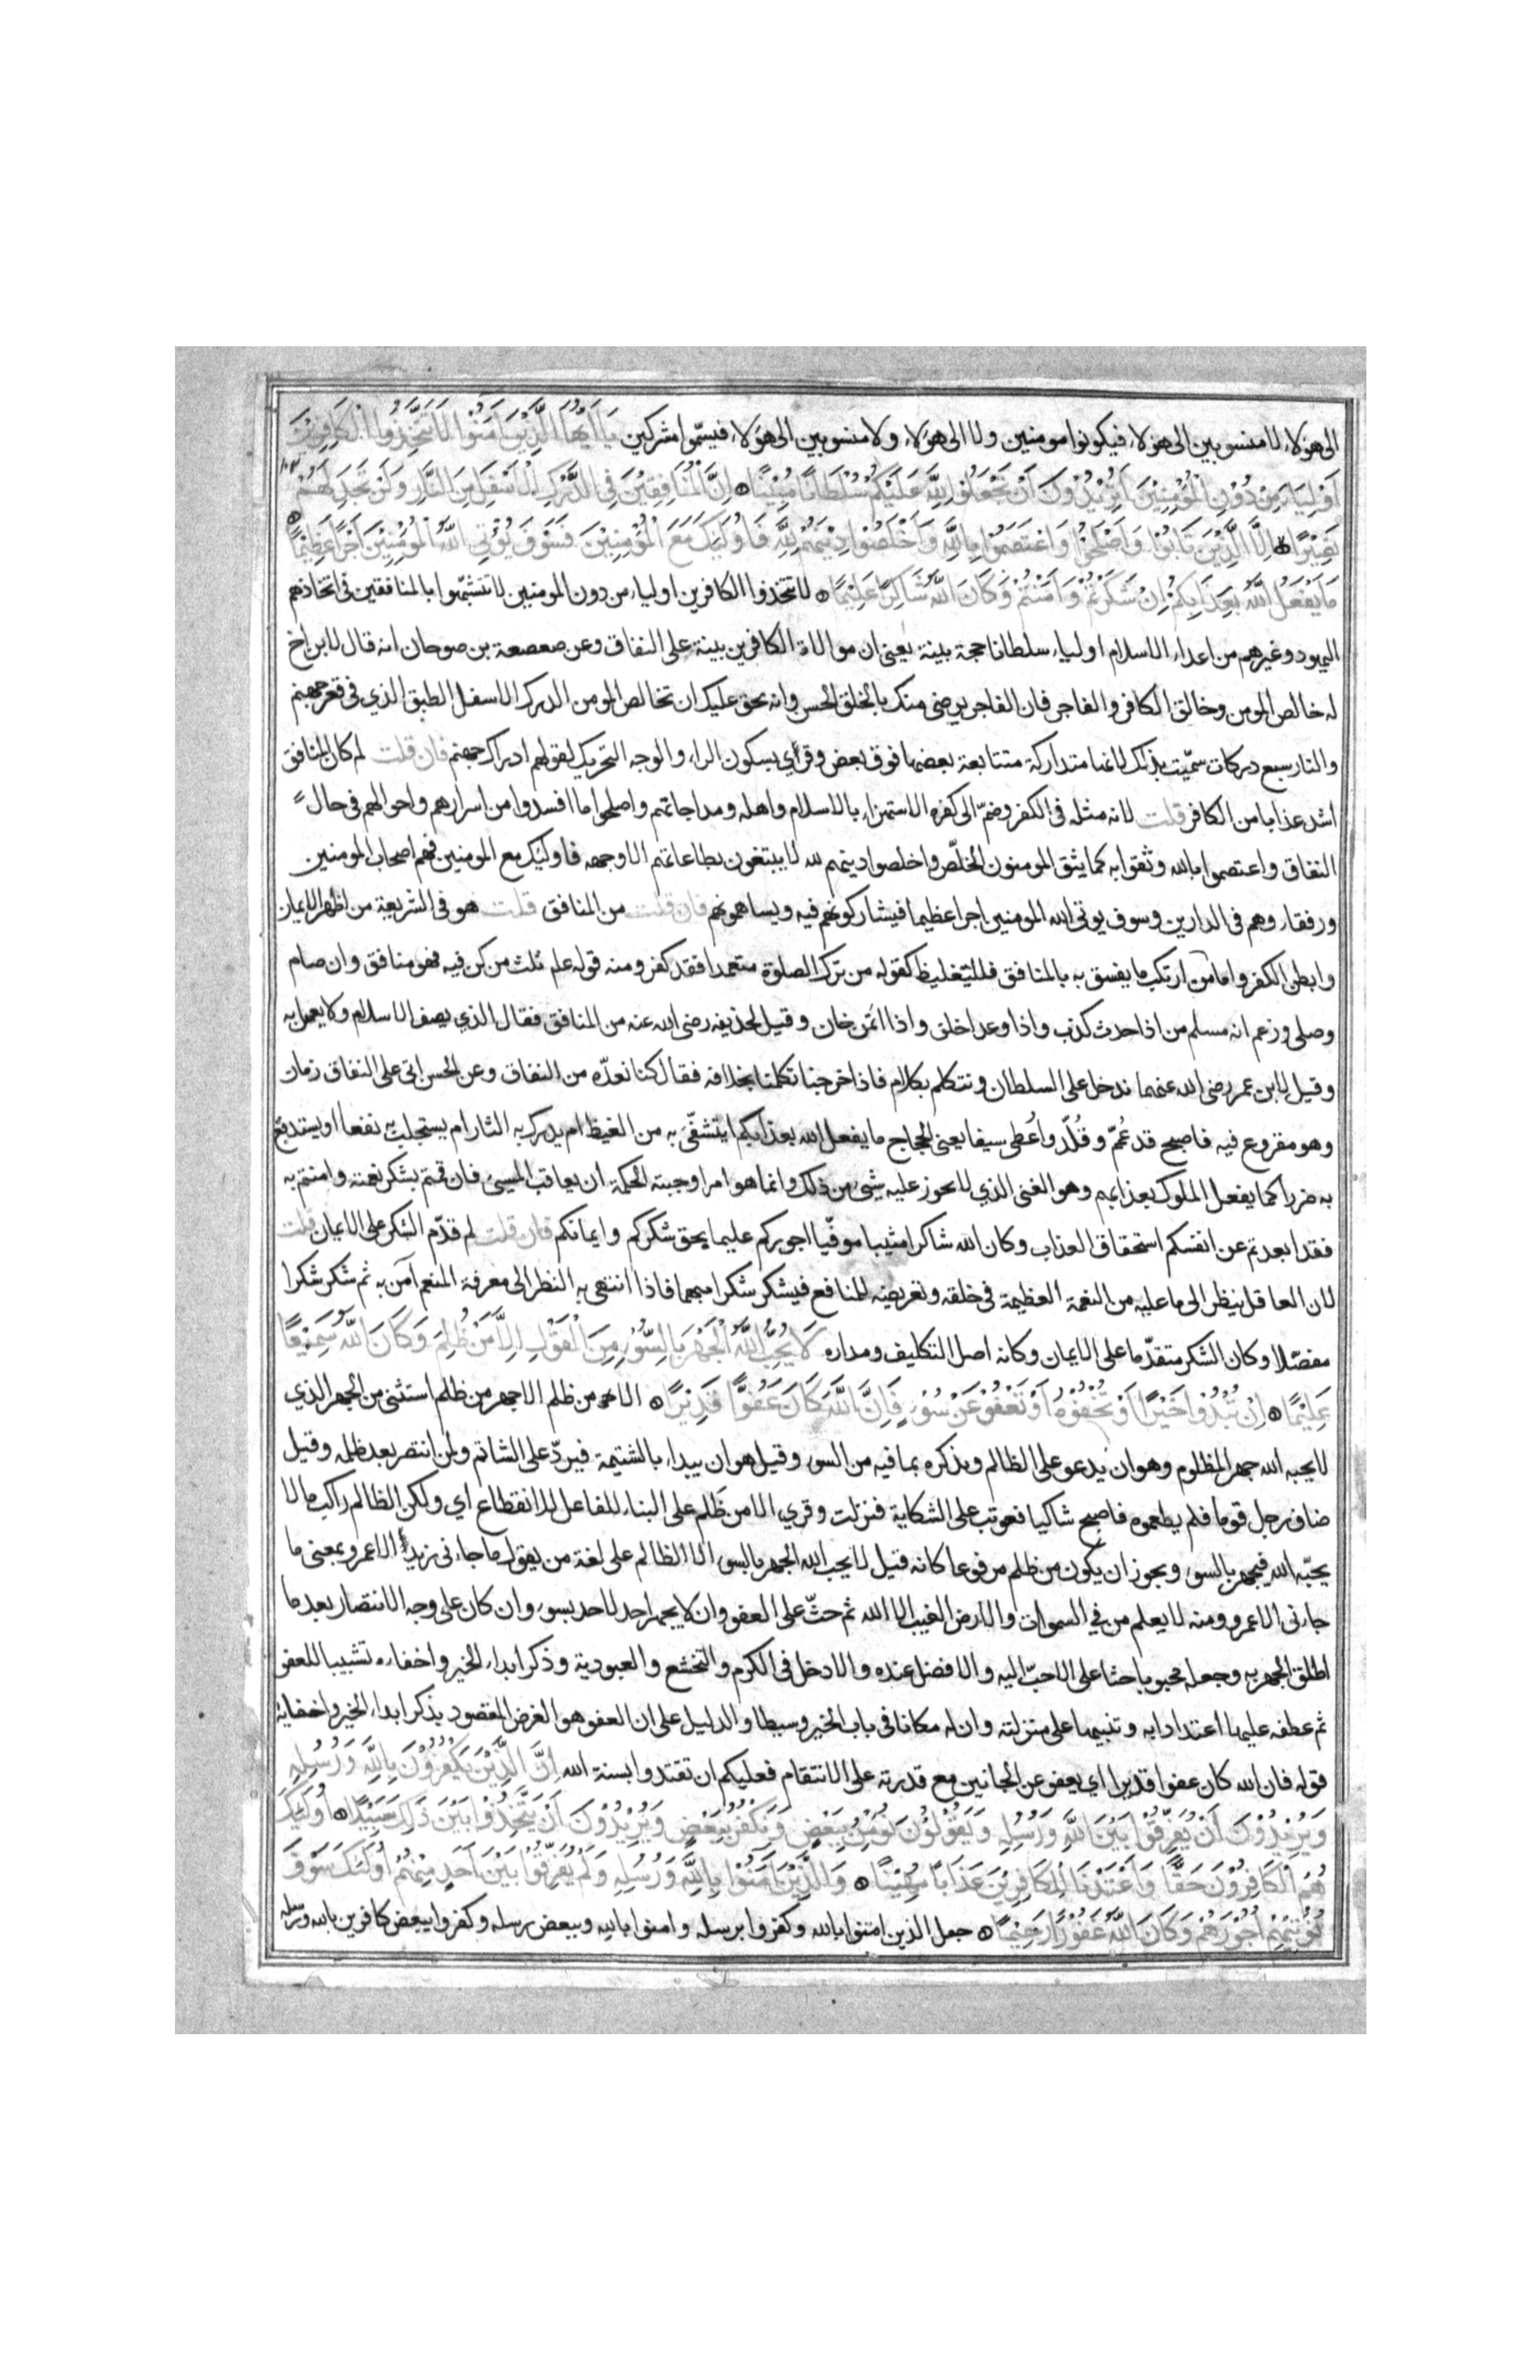 الى هؤلاء لا منسوبين الى هؤلاء فيكونوا مومنين ولا الى هؤلاء ولا منسوبين الى هؤلاء فيسمّوا مشركين يَا أَيُّهَا الَّذِيْنَ آمَنُوْا لَا تَتَّخِذُوا الْكَافِرِيْنَ
أَوْلِيَاءَ مِنْ دُوْنِ الْمُؤْمِنِيْنَ أَتُرِيْدُوْنَ أَنْ تَجْعَلُوْا لِلَّهِ عَلَيْكُمْ سُلْطَانًا مُبِيْنًا ۝ اِنَّ الْمُنَافِقِيْنَ فِي الدَّرْكِ الْأَسْفَلِ مِنَ النَّارِ وَلَنْ تَجِدَ لَهُمْ
نَصِيْرًا ۝ اِلَّا الَّذِيْنَ تَابُوْا وَأَصْلَحُوْا وَاعْتَصَمُوْا بِاللَّهِ وَأَخْلَصُوْا دِيْنَهُمْ لِلَّهِ فَأُولَئِكَ مَعَ الْمُؤْمِنِيْنَ فَسَوْفَ يُؤْتِي اللَّهُ الْمُؤْمِنِيْنَ أَجْرًا عَظِيْمًا ۝
مَا يَفْعَلُ اللَّهُ بِعَذَابِكُمْ اِنْ شَكَرْتُمْ وَآمَنْتُمْ وَكَانَ اللَّهُ شَاكِرًا عَلِيْمًا ۝ لا تتخذوا الكافرين اولياء من دون المومنين لا تتشبّهوا بالمنافقين في اتخاذهم
اليهود وغيرهم من اعداء الاسلام اولياء سلطانا حجة بينة يعني ان موالاة الكافرين بينة على النفاق وعن صعصعة بن صوحان انه قال لابن اخ
له خالص المومن وخالق الكافر والفاجر فان الفاجر يرضى منك بالخلق الحسن وانه يحق عليك ان تخالص المومن الدرك الاسفل الطبق الذي في قعر جهنم
والنار سبع دركات سمّيت بذلك لانها متداركة متتابعة بعضها فوق بعض وقرئ بسكون الراء والوجه التحريك لقولهم ادراك جهنم فان قلت لم كان المنافق
اشد عذابا من الكافر قلت لانه مثله في الكفر وضمّ الى كفره الاستهزاء بالاسلام واهله ومداجاتهم واصلحوا ما افسدوا من اسرارهم واحوالهم في حال
النفاق واعتصموا بالله وثقوا به كما يثق المومنون الخلّص واخلصوا دينهم لله لا يبتغون بطاعاتهم الا وجهه فاولئك مع المومنين فهم اصحاب المومنين
ورفقاءهم في الدارين وسوف يوتى الله المومنين اجرا عظيما فيشاركونهم فيه ويساهمونهم فان قلت من المنافق قلت هو في الشريعة من اظهر الايمان
وابطن الكفر واما من ارتكب ما يفسق به بالمنافق فللتغليظ كقوله من ترك الصلوة متعمدا فقد كفر ومنه قوله علم ثلث من كن فيه فهو منافق وان صام
وصلى وزعم انه مسلم من اذا حدث كذب واذا وعد اخلف واذا ائتمن خان وقيل لحذيفه رضى الله عنه من المنافق فقال الذي يصف الاسلام ولا يعمل به
وقيل لابن عمر رضى الله عنهما ندخل على السلطان ونتكلم بكلام فاذا خرجنا تكلمنا بخلافه فقال كنا نعدّه من النفاق وعن الحسن اتى على النفاق زمان
وهو مقروع فيه فاصبح قد عُمّم وقُلّد واُعطى سيفا يعنى الحجاج ما يفعل الله بعذابكم ايتشفّى به من الغيظ ام يدرك به الثار ام يستجلب به نفعا او يستدفع
به ضررا كما يفعل الملوك بعذابهم وهو الغنى الذي لا يجوز عليه شئ من ذلك وانما هو امر اوجبته الحكمة ان يعاقب المسيئ فان قمتم بشكر نعمته وامنتم به
فقد ابعدتم عن انفسكم استحقاق العذاب وكان الله شاكرا مثيبا موفّيا اجوركم عليما يحق شكركم وايمانكم فان قلت لم قدّم الشكر على الايمان قلت
لان العاقل ينظر الى ما عليه من النعمة العظيمة في خلقه وتعريضه للمنافع فيشكر شكرا مبهما فاذا انتهى به النظر الى معرفة المنعم آمن به ثم شكر شكرا
مفصّلا وكان الشكر متقدّما على الايمان وكانه اصل التكليف ومداره لَا يُحِبُّ اللَّهُ الْجَهْرَ بِالسُّوْءِ مِنَ الْقَوْلِ اِلَّا مَنْ ظُلِمَ وَكَانَ اللَّهُ سَمِيْعًا
عَلِيْمًا ۝ اِنْ تُبْدُوْا خَيْرًا أَوْ تُخْفُوْهُ أَوْ تَعْفُوْا عَنْ سُوْءٍ فَاِنَّ اللَّهَ كَانَ عَفُوًّا قَدِيْرًا ۝ الا من ظلم الا جهر من ظلم استثنى من الجهر الذي
لا يحبه الله جهر المظلوم وهو ان يدعو على الظالم ويذكره بما فيه من السوء وقيل هو ان يبداء بالشتيمة فيردّ على الشاتم ولمن انتصر بعد ظلمه وقيل
ضاف رجل قوما فلم يطعموه فاصبح شاكيا فعوتب على الشكاية فنزلت وقري الا من ظَلم على البناء للفاعل للانقطاع اي ولكن الظالم راكب ما لا
يحبّه الله فيجهر بالسوء ويجوز ان يكون من ظلم مرفوعا كانه قيل لا يحب الله الجهر بالسوء الا الظالم على لغة من يقول ما جاءنى زيد الا عمرو بمعنى ما
جاءنى الا عمرو ومنه لا يعلم من في السموات والارض الغيب الا الله ثم حثّ على العفو وان لا يجهر احد لاحد بسوء وان كان على وجه الانتصار بعد ما
اطلق الجهر به وجعله محبوبا حثا على الاحبّ اليه والافضل عنده والادخل في الكرم والتخشع والعبودية وذكر ابداء الخير واخفاءه تشبيبا للعفو
ثم عطفه عليهما اعتدادا به وتنبيها على منزلته وان له مكانا في باب الخير وسيطا والدليل على ان العفو هو الغرض المقصود بذكر ابداء الخير واخفائه
قوله فان الله كان عفوا قديرا اي يعفو عن الجانين مع قدرته على الانتقام فعليكم ان تقتدوا بسنة الله اِنَّ الَّذِيْنَ يَكْفُرُوْنَ بِاللَّهِ وَرُسُلِهِ
وَيُرِيْدُوْنَ أَنْ يُفَرِّقُوْا بَيْنَ اللَّهِ وَرُسُلِهِ وَيَقُوْلُوْنَ نُؤْمِنُ بِبَعْضٍ وَنَكْفُرُ بِبَعْضٍ وَيُرِيْدُوْنَ أَنْ يَتَّخِذُوْا بَيْنَ ذَلِكَ سَبِيْلًا ۝ أُولَئِكَ
هُمُ الْكَافِرُوْنَ حَقًّا وَأَعْتَدْنَا لِلْكَافِرِيْنَ عَذَابًا مُهِيْنًا ۝ وَالَّذِيْنَ آمَنُوْا بِاللَّهِ وَرُسُلِهِ وَلَمْ يُفَرِّقُوْا بَيْنَ أَحَدٍ مِنْهُمْ أُولَئِكَ سَوْفَ
نُؤْتِيْهِمْ أُجُوْرَهُمْ وَكَانَ اللَّهُ غَفُوْرًا رَحِيْمًا ۝ جعل الذين امنوا بالله وكفروا برسله وامنوا بالله وببعض رسله وكفروا ببعض كافرين بالله ورسله